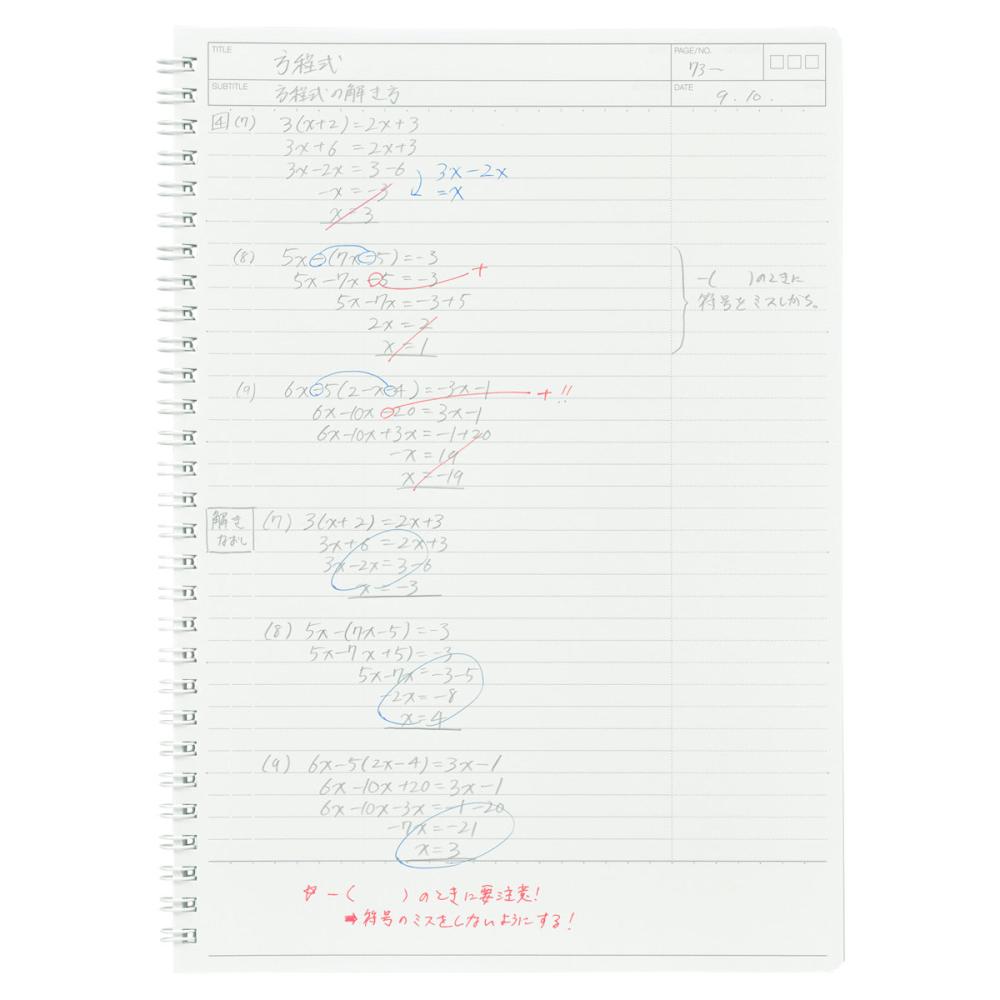 TITLE
方程式
PAGE/NO.
73〜
SUBTITLE
方程式の解き方
DATE
9.10.
4 (7) 3(x+2)=2x+3
3x+6 =2x+3
3x-2x=3-6
3x-2x
-x=-3
=x
x=3
(8) 5x-(7x-5)=-3
5x-7x-5=-3
+
5x-7x=-3+5
2x=2
x=1
-( )のときに
符号をミスしがち。
(9) 6x-5(2-x-4)=-3x-1
+!!
6x-10x-20=3x-1
6x-10x+3x=-1+20
-x=19
x=-19
解き
なおし
(7) 3(x+2)=2x+3
3x+6 =2x+3
3x-2x=3-6
x=-3
(8) 5x-(7x-5)=-3
5x-7x+5)=-3
5x-7x=-3-5
-2x=-8
x=4
(9) 6x-5(2x-4)=3x-1
6x-10x+20=3x-1
6x-10x-3x=-1-20
-7x=-21
x=3
☆ -( )のときに要注意!
➡ 符号のミスをしないようにする!